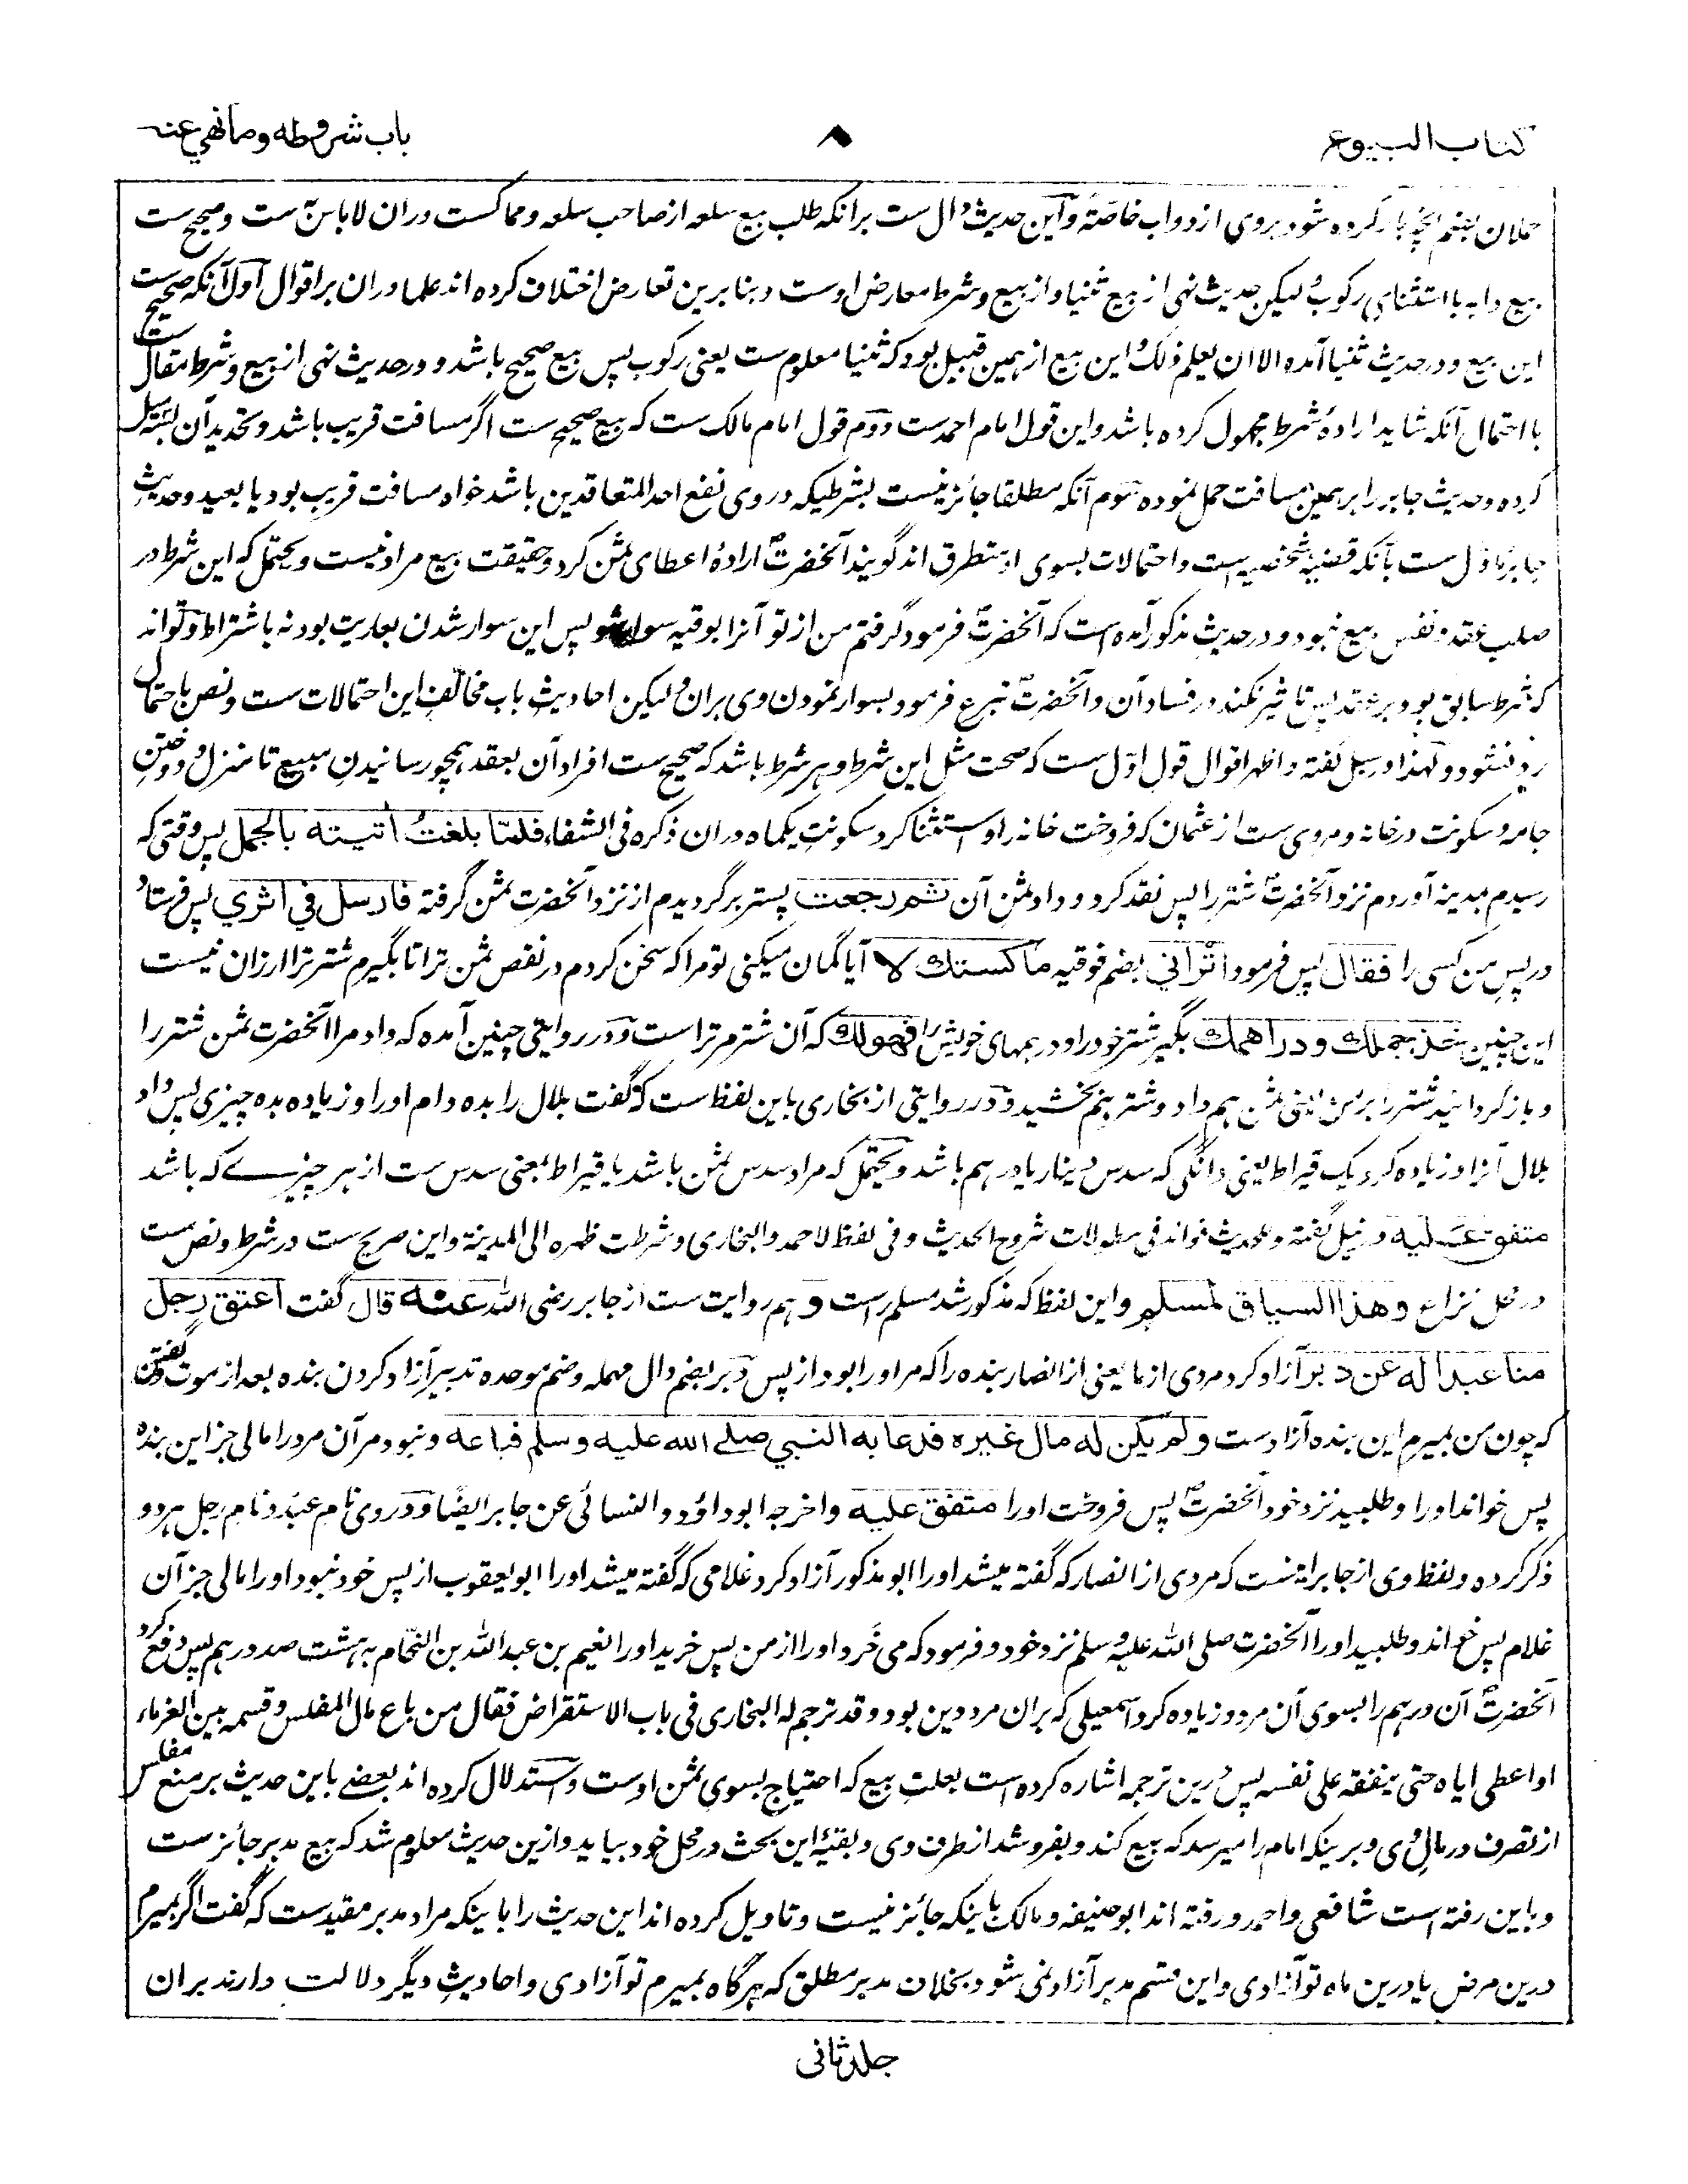 کتاب البیوع
۸
باب شروطه وما نهي عنه
حملان بضم انچه بار کرده شود بروی از دواب خاصّةً و این حدیث دال ست برانکه طلب بیع سلعه از صاحب سلعه و مماکست دران لا باس ست و صحیح ست
بیع دابه با استثنای رکوب لیکن حدیث نهی از بیع ثنیا و از بیع و شرط معارض اوست و بنا برین تعارض اختلاف کرده اند علما دران بر اقوال اول آنکه صحیح ست
این بیع و در حدیث ثنیا آمده الا ان یعلم ذلک و این بیع از همین قبیل بود که ثنیا معلوم ست یعنی رکوب پس بیع صحیح باشد و در حدیث نهی از بیع و شرط مقال ست
با احتمال آنکه شاید ارادهٔ شرط مجهول کرده باشد و این قول امام احمدست دوم قول امام مالک ست که بیع صحیح ست اگر مسافت قریب باشد و تحدید آن بسه میل
کرده و حدیث جابر را بر همین مسافت حمل نموده سوم آنکه مطلقا جائز نیست بشرطیکه در وی نفع احد المتعاقدین باشد خواه مسافت قریب بود یا بعید و حدیث
جابر ماول ست بآنکه قضیهٔ شخصیه است و احتمالات بسوی او متطرق اند گویند آنحضرتؐ ارادهٔ اعطای ثمن کرد و حقیقت بیع مراد نیست و یحتمل که این شرط در
صلب عقد و نفس بیع نبود و در حدیث مذکور آمده است که آنحضرتؐ فرمود گرفتم من از تو آنرا بوقیه سوار شو پس این سوار شدن بعاریت بود نه باشتراط و تواند
که شرط سابق بود بر عقد پس تاثیر نکند در فساد آن و آنحضرتؐ تبرع فرمود بسوار نمودن وی بران و لیکن احادیث باب مخالف این احتمالات ست و نص باحتمال
رد نشود و لهذا در سبل گفته و اظهر اقوال قول اول ست که صحت مثل این شرط و هر شرط باشد که صحیح ست افراد آن بعقد همچو رسانیدن مبیع تا منزل و دوختن
جامه و سکونت در خانه و مروی ست از عثمان که فروخت خانه را و استثنا کرد سکونت یکماه دران ذکره فی الشفاء فلمّا بلغتُ اتیته بالجمل پس وقتی که
رسیدم بمدینه آوردم نزد آنحضرتؐ شتر را پس نقد کرد و داد ثمن آن ثم رجعت پستر برگردیدم از نزد آنحضرت ثمن گرفته فارسل في اثري پس فرستاد
در پس من کسی را فقال پس فرمود اتُراني بضم فوقیه ماکستك لا آیا گمان میکنی تو مرا که سخن کردم در نقص ثمن ترا تا بگیرم شتر ترا ارزان نیست
این چنین خذ جملك ودراهمك بگیر شتر خود را و درهمهای خویش را فهولك که آن شتر مر تراست و در روایتی چنین آمده که داد مرا آنحضرت ثمن شتر را
و باز گردانید شتر را بر من یعنی ثمن هم داد و شتر هم بخشید و در روایتی از بخاری باین لفظ ست که گفت بلال را بده دام او را و زیاده بده چیزی پس داد
بلال آنرا و زیاده کرد یک قیراط یعنی دانگی که سدس دینار یا درهم باشد و یحتمل که مراد سدس ثمن باشد یا قیراط بمعنی سدس ست از هر چیزے که باشد
متفق علیه در نیل گفته و للحدیث فوائد فی مطولات شروح الحدیث و فی لفظ لاحمد و البخاری و شرطت ظهره الی المدینة و این صریح ست در شرط و نص ست
در محل نزاع وهذا السیاق لمسلم و این لفظ که مذکور شد مسلم راست و هم روایت ست از جابر رضی الله عنه قال گفت اعتق رجل
منا عبدا له عن دبر آزاد کرد مردی از ما یعنی از انصار بنده را که مر او را بود از پس دبر بضم دال مهمله و ضم موحده تدبیر آزاد کردن بنده بعد از موت و گفتن
که چون من بمیرم این بنده آزاد ست ولم یکن له مال غیره فدعا به النبي صلے الله علیه وسلم فباعه و نبود مر آن مرد را مالی جز این بنده
پس خواند او را و طلبید نزد خود آنحضرتؐ پس فروخت او را متفق علیه و اخرجه ابوداؤد و النسائی عن جابر ایضًا و در وی نام عبد و نام رجل هر دو
ذکر کرده و لفظ وی از جابر اینست که مردی از انصار که گفته میشد او را ابو مذکور آزاد کرد غلامی که گفته میشد او را ابو یعقوب از پس خود نبود او را مالی جز آن
غلام پس خواند و طلبید او را آنحضرت صلی الله علیه وسلم نزد خود و فرمود که می خرد او را از من پس خرید او را نعیم بن عبد الله بن النحّام به هشت صد درهم پس دفع کرد
آنحضرتؐ آن درهم را بسوی آن مرد و زیاده کرد اسمعیلی که بران مرد دین بود و قد ترجم له البخاری فی باب الاستقراض فقال من باع مال المفلس و قسمه بین الغرماء
او اعطی ایاه حتی ینفقه علی نفسه پس درین ترجمه اشاره کرده است بعلت بیع که احتیاج بسوی ثمن اوست و استدلال کرده اند بعضے باین حدیث بر منع مفلس
از تصرف در مال وی و برینکه امام را میرسد که بیع کند و بفروشد از طرف وی و بقیهٔ این بحث در محل خود بیاید و ازین حدیث معلوم شد که بیع مدبر جائز ست
و باین رفته است شافعی و احمد و رفته اند ابو حنیفه و مالک باینکه جائز نیست و تاویل کرده اند این حدیث را باینکه مراد مدبر مقیدست که گفت اگر بمیرم
درین مرض یا درین ماه تو آزادی و این قسم مدبر آزاد نمی شود بخلاف مدبر مطلق که هرگاه بمیرم تو آزادی و احادیث دیگر دلالت دارند بران
جلد ثانی